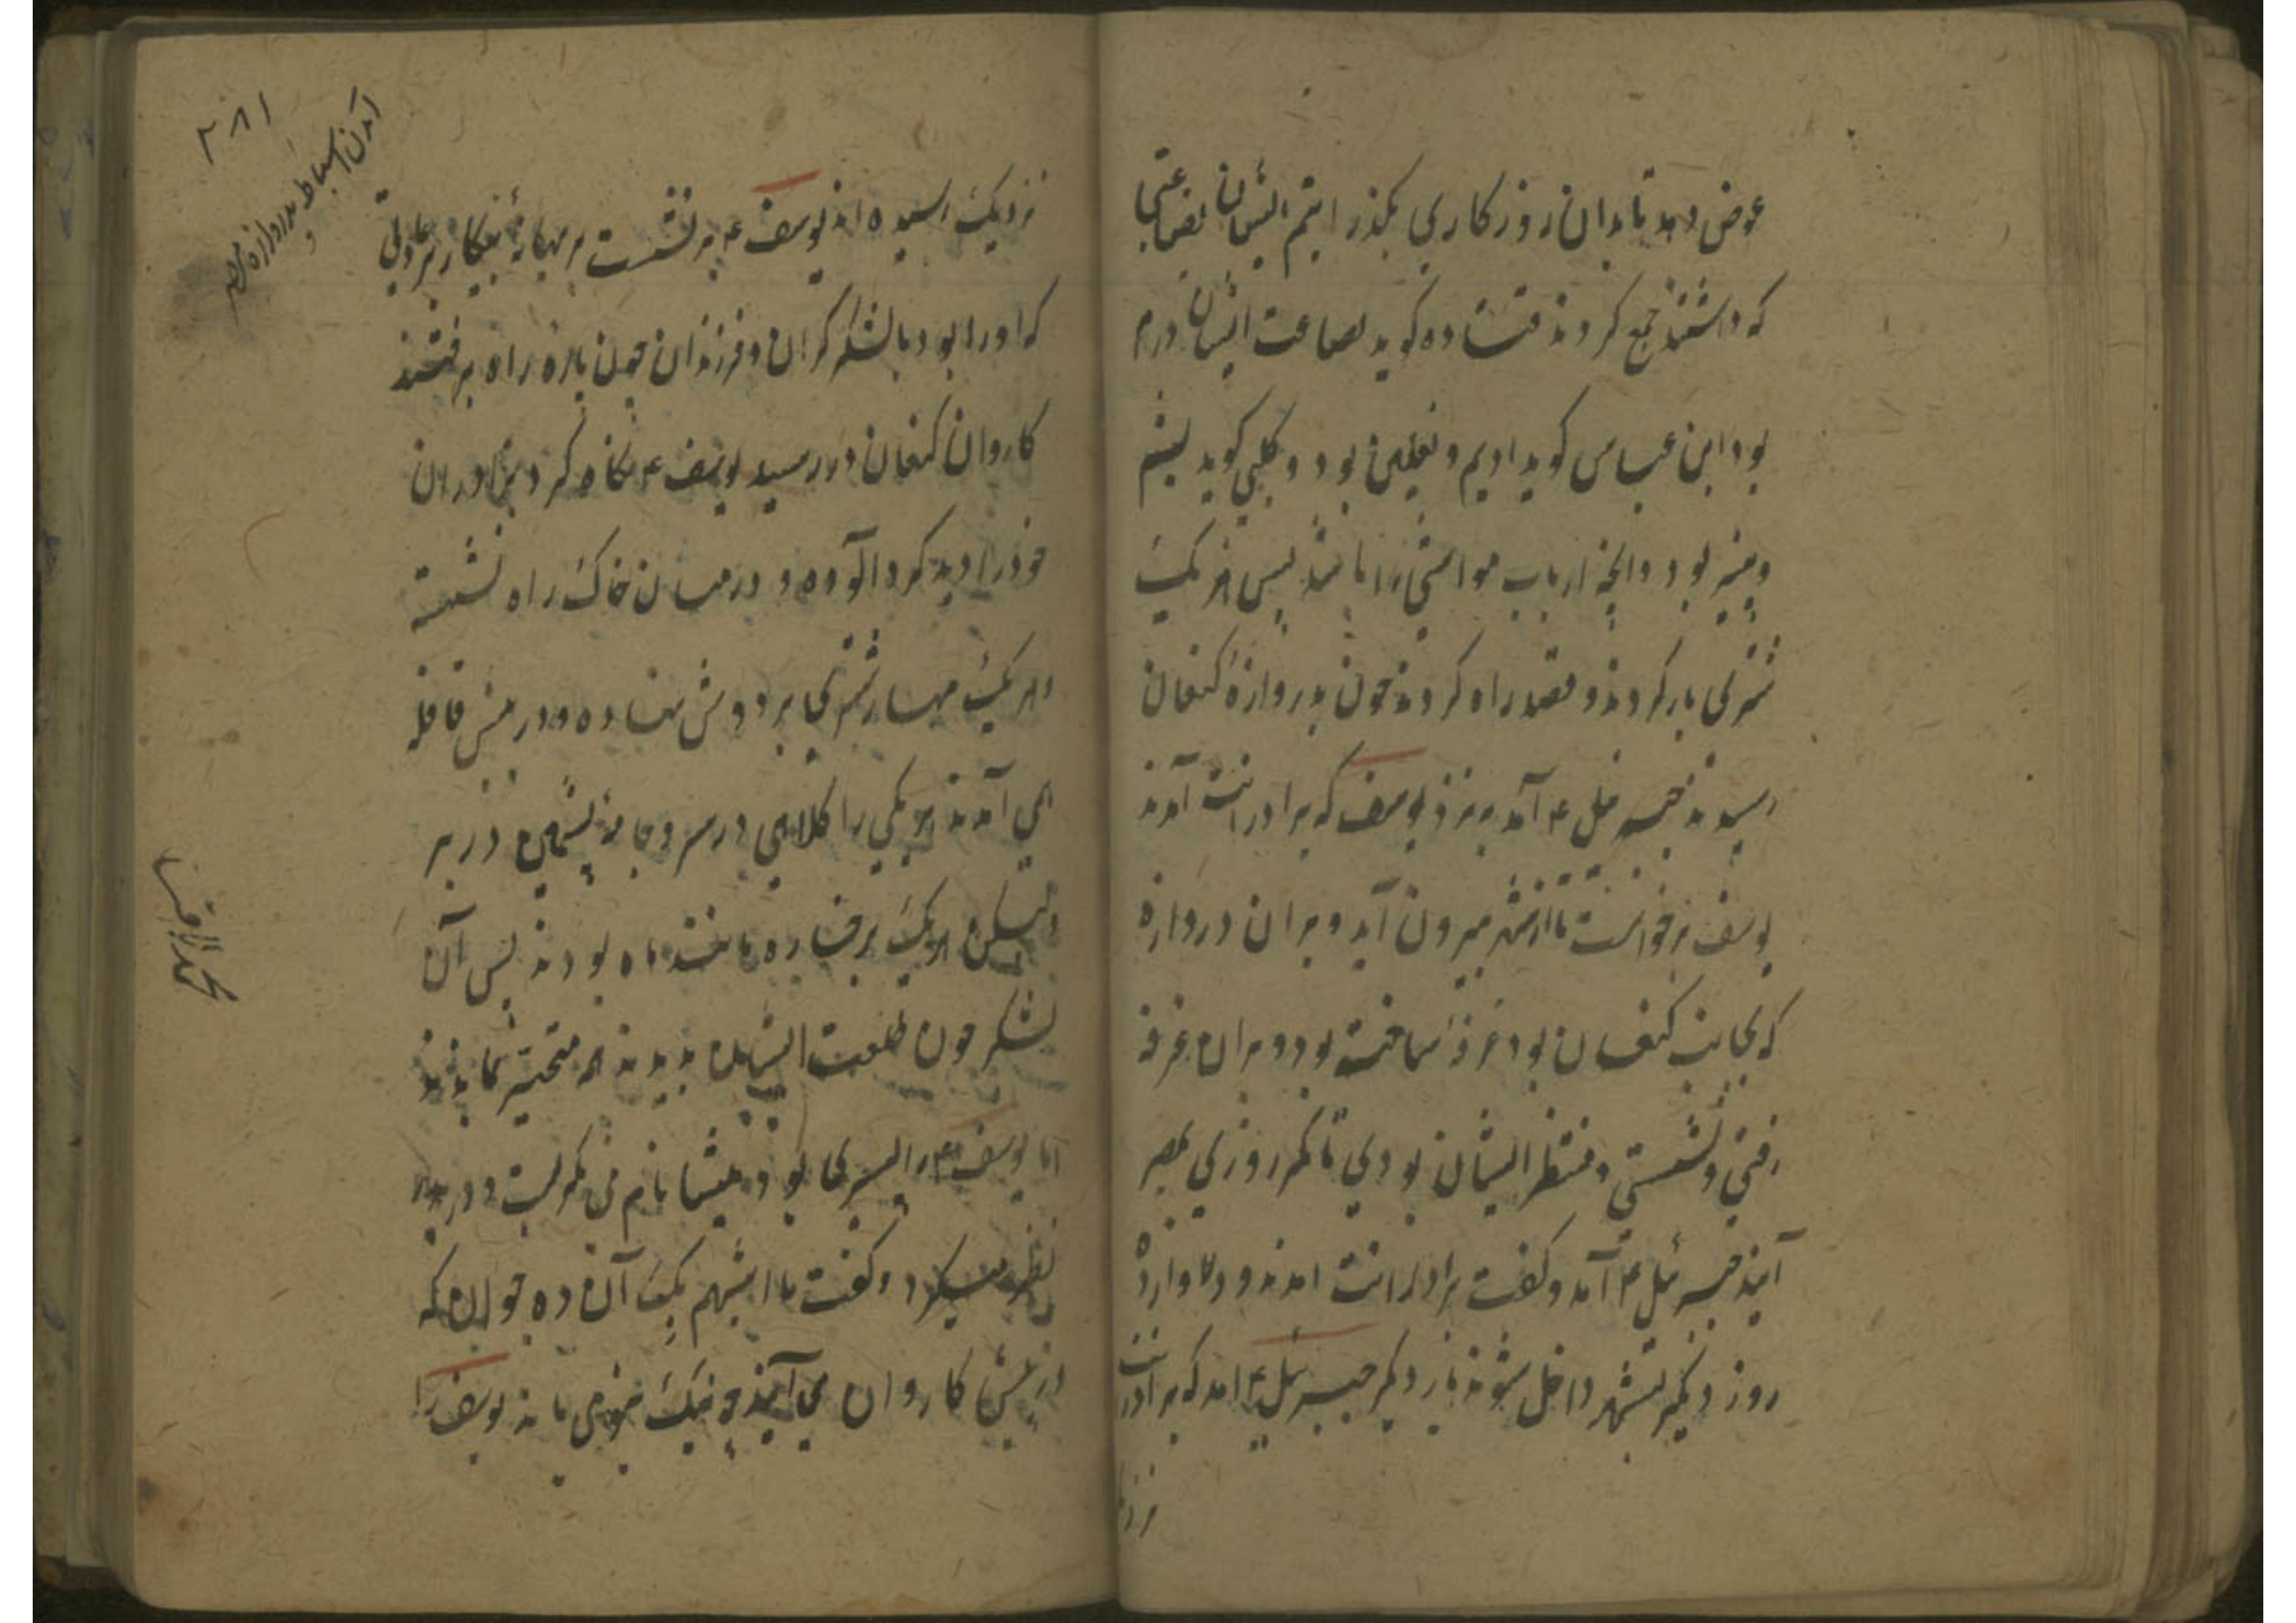 عوض دهد تا بدان روزکاری بکذرانیم ایشان بضاعتی
که داشتند جمع کردند قتاده کوید بضاعت ایشان درم
بود ابن عباس کوید ادیم و نعلین بود و کلبی کوید پشم
و پنیر بود و انچه ارباب مواشی را باشد پس هر یک
شتری بار کردند و قصد راه کردند چون بدروازهٔ کنعان
رسیدند جبرئیل ۴ آمد بنزد یوسف که برادرانت آمدند
یوسف برخواست تا از شهر بیرون آید و بران دروازه
که بجانب کنعان بود غرفهٔ ساخته بود و بران غرفه
رفتی و نشستی و منتظر ایشان بودی تا مکر روزی بمصر
آیند جبرئیل ۴ آمد و کفت برادرانت امدند و
روز دیکر بشهر داخل شوند بار دیکر جبرئیل ۴ امد که برادرانت
نزد
۲۸۱
آمدن اسباط بدروازه مصر
نزدیک رسیده اند یوسف ۴ بر نشست بر بهانهٔ شکار
که اورا بود با لشکر کران و فرزندان چون پارهٔ راه برفتند
کاروان کنعان در رسید یوسف ۴ نکاه کرد برادران
خود را دید کرد آلوده و در میان خاک راه نشسته
و هر یک مهار شتری بر دوش نهاده و در پیش قافله
می آمدند هر یکی را کلاهی در سر و جامهٔ پشمین در بر
ولیکن هر یک برخساره مانند ماه بودند پس آن
لشکر چون طلعت ایشان بدیدند همه متحیر بماندند
اما یوسف ۴ را پسری بود میشا نام می نکریست و در پدر
نظر میکرد و کفت یا ابتهم یک آن ده جوان که
در پیش کاروان می آیند چه نیک می مانند یوسف را